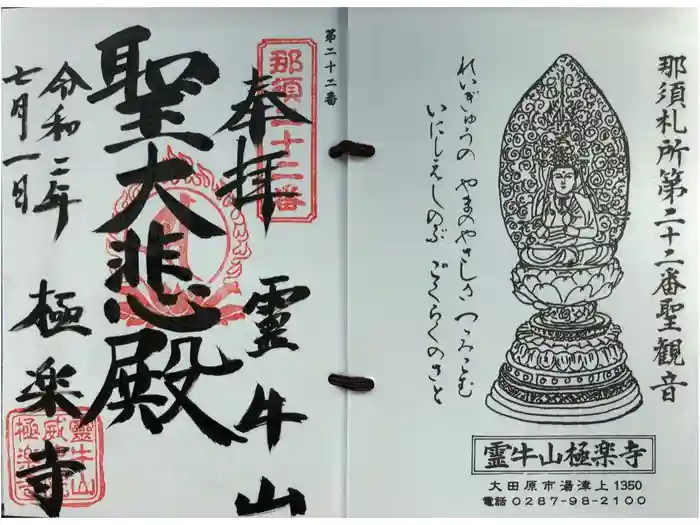 那須札所第二十二番聖観音
れいぎゅうの やまのやさしさ つつみこむ
いにしえしのぶ ごくらくのさと
霊牛山極楽寺
大田原市湯津上1350
電話0287-98-2100
第二十二番
那須二十二番
奉拝
霊牛山
聖大悲殿
令和二年
七月一日
極楽寺
霊牛山
威
極楽寺